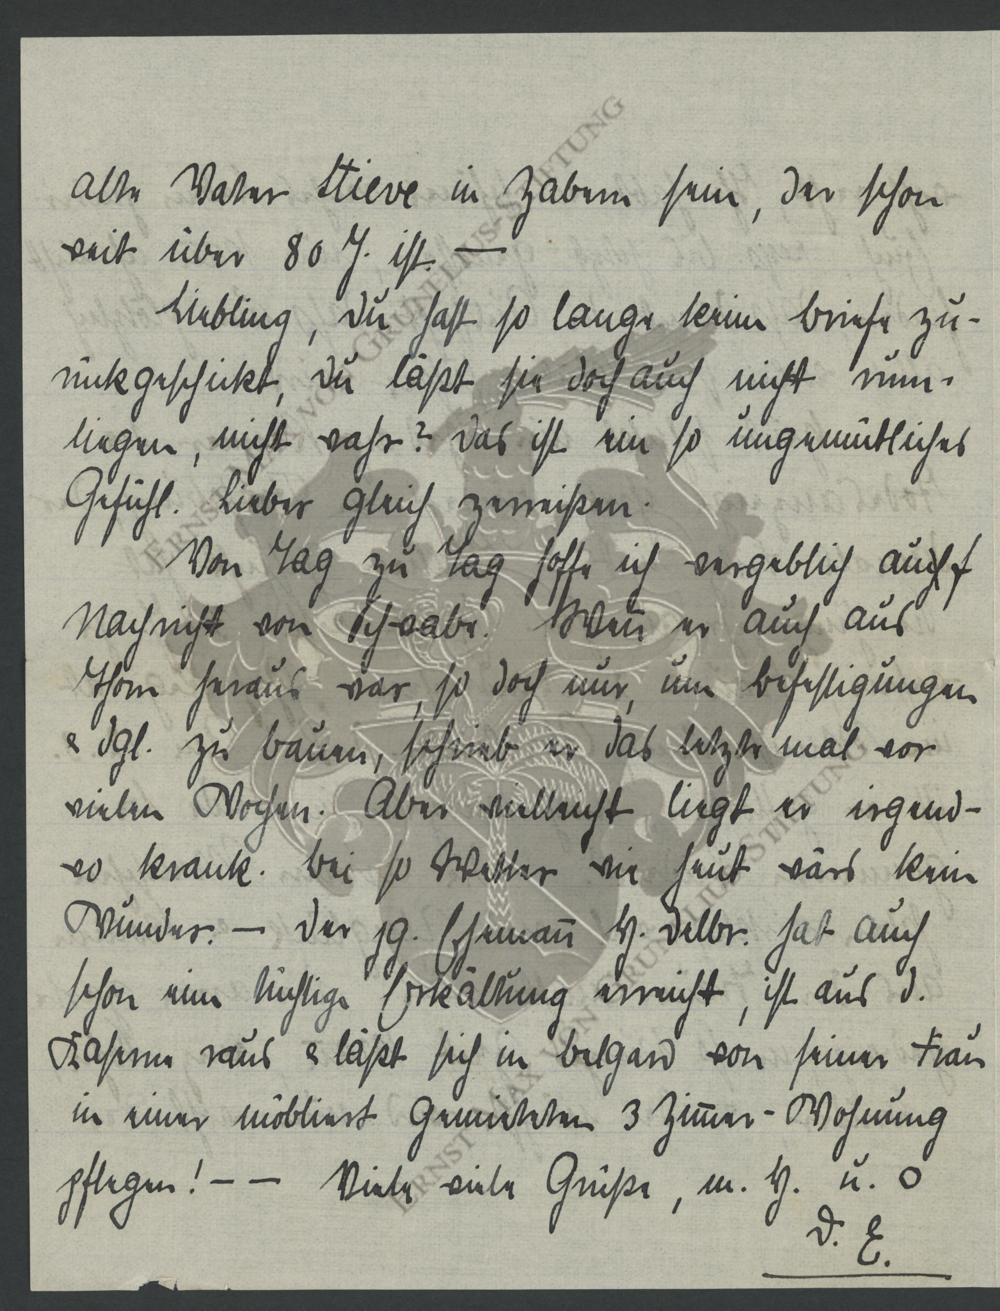 alte Vater Stieve in Zabern sein, der schon
weit über 80 J. ist. —
Liebling, du hast so lange keine briefe zu-
rückgeschickt, du läßt sie doch auch nicht rum-
liegen, nicht wahr? das ist ein so ungemütliches
Gefühl. Lieber gleich zerreißen.
Von Tag zu Tag hoffe ich vergeblich auf
Nachricht von Schwabe. Weñ er auch aus
Thorn heraus war, so doch nur, um befestigungen
& dgl. zu bauen, schrieb er das letzte mal vor
vielen Wochen. Aber vielleicht liegt er irgend-
wo krank. bei so Wetter wie heut wärs kein
Wunder. — der jg. Ehemañ H. delbr. hat auch
schon eine tüchtige Erkältung erreicht, ist aus d.
Kaserne raus & läßt sich in belgard von seiner Frau
in einer möbliert gemieteten 3 Zim̃er-Wohnung
pflegen! — — Viele viele Grüße, m. H. u. O
D. E.
ERNST MAX VON GRUNELIUS-STIFTUNG
ERNST MAX VON GRUNELIUS-STIFTUNG